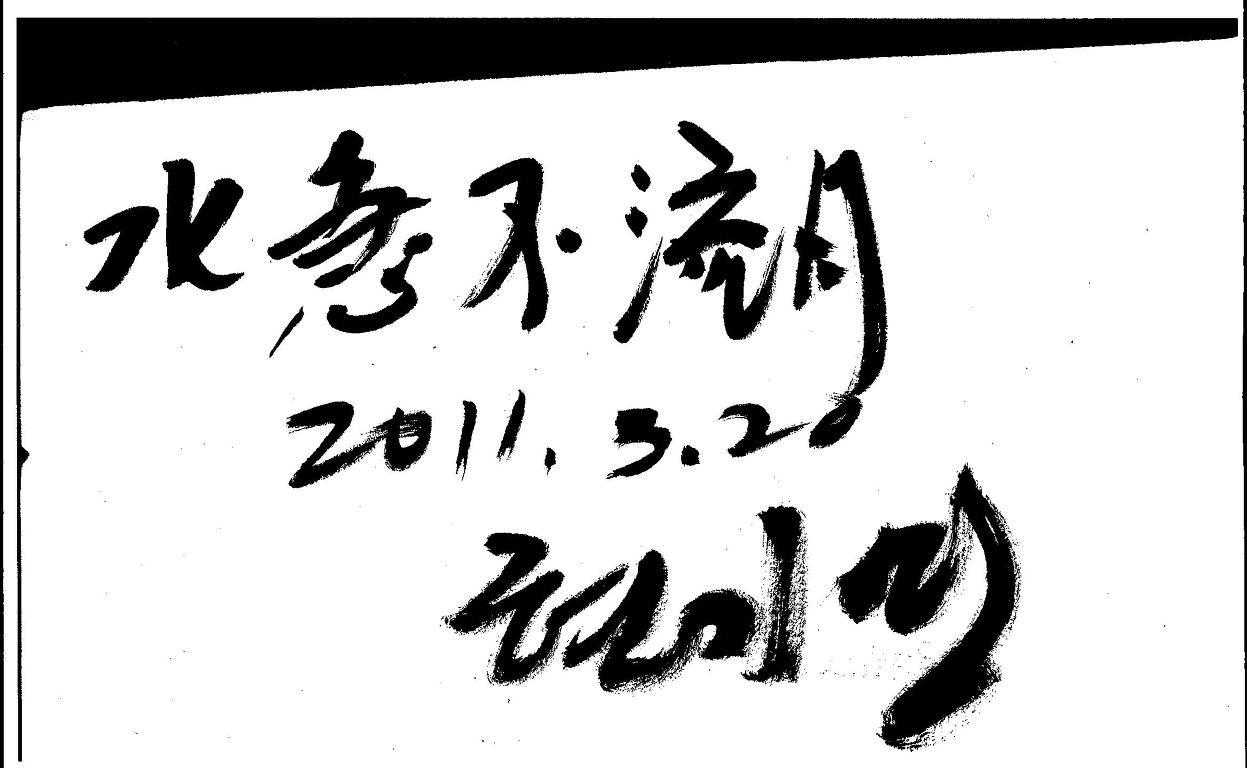 水急不流月
2011. 3. 20